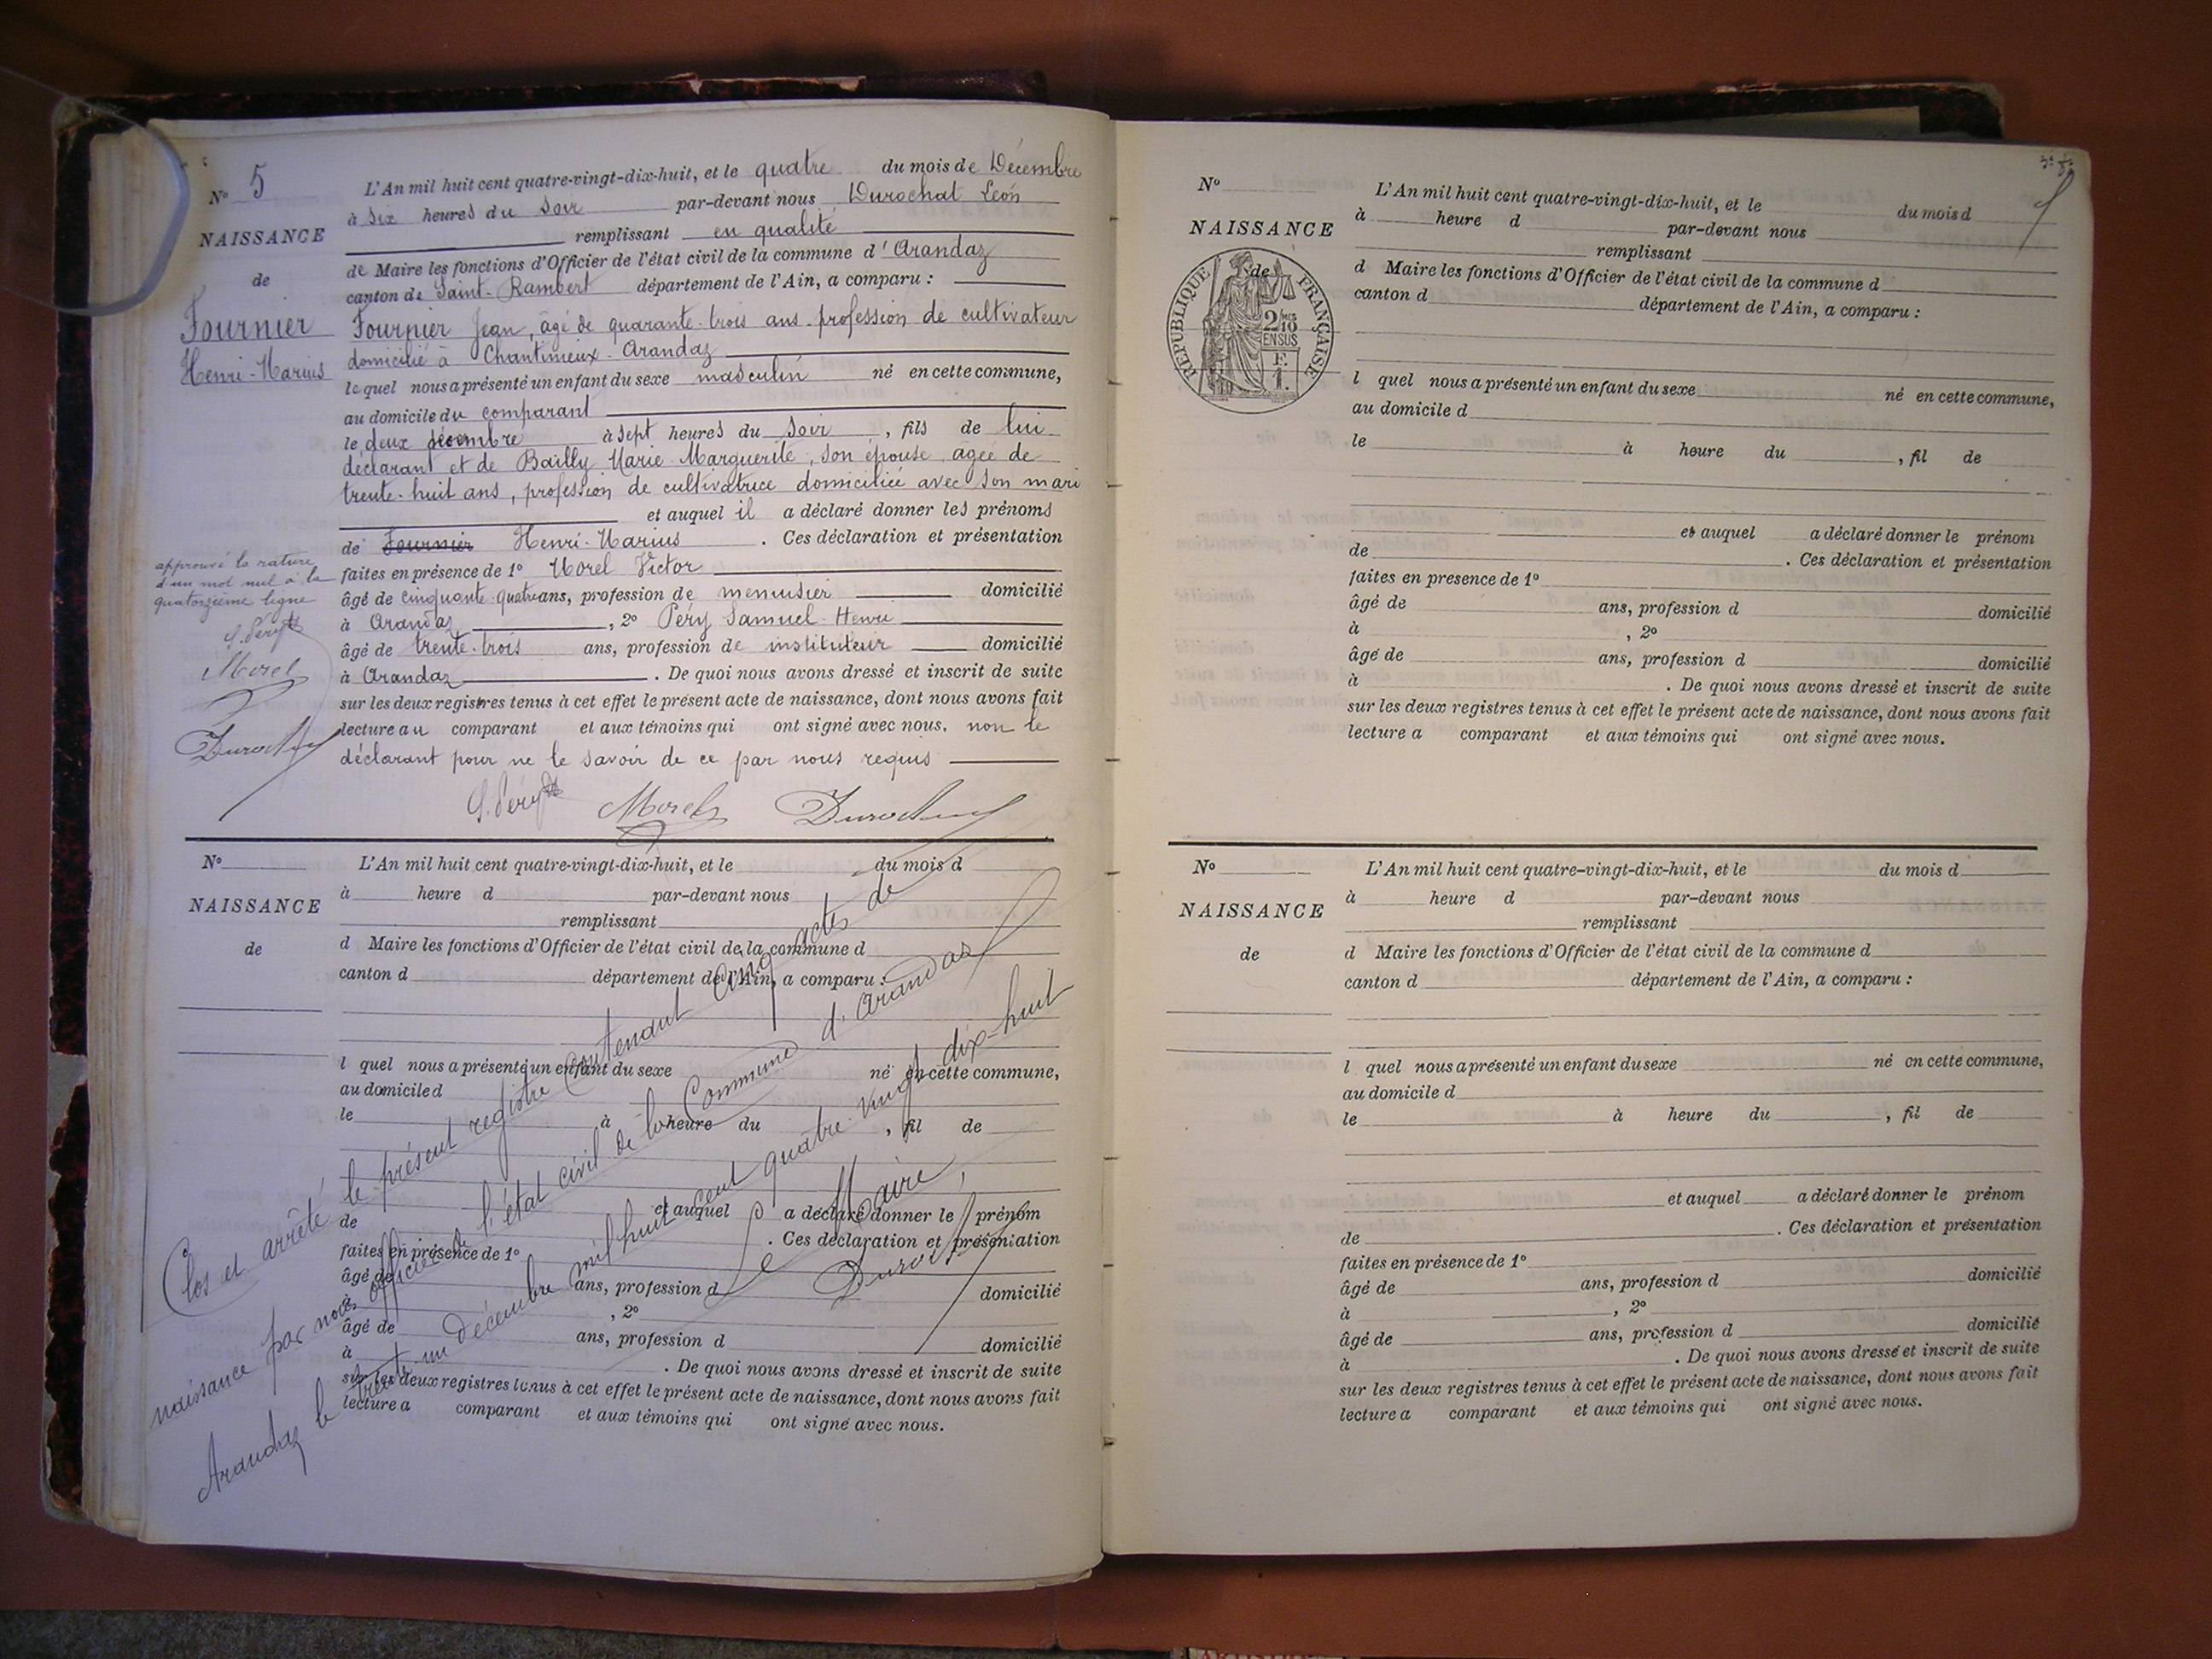 N° 5
NAISSANCE
de
Fournier
Henri-Marius
L'An mil huit cent quatre-vingt-dix-huit, et le quatre du mois de Décembre
à six heures du soir par-devant nous Durochat Léon
remplissant en qualité
de Maire les fonctions d'Officier de l'état civil de la commune d'Arandaz
canton de Saint-Rambert département de l'Ain, a comparu :
Fournier Jean, âgé de quarante-trois ans profession de cultivateur
domicilié à Chantimieux-Arandaz
lequel nous a présenté un enfant du sexe masculin né en cette commune,
au domicile du comparant
le deux décembre à sept heures du soir, fils de lui
déclarant et de Bailly Marie Marguerite, son épouse, agée de
trente-huit ans, profession de cultivatrice domiciliée avec son mari
et auquel il a déclaré donner les prénoms
de Fournier Henri-Marius. Ces déclaration et présentation
faites en présence de 1° Morel Victor
âgé de cinquante-quatre ans, profession de menuisier domicilié
à Arandaz, 2° Péry Samuel-Henri
âgé de trente-trois ans, profession de instituteur domicilié
à Arandaz. De quoi nous avons dressé et inscrit de suite
sur les deux registres tenus à cet effet le présent acte de naissance, dont nous avons fait
lecture au comparant et aux témoins qui ont signé avec nous, non le
déclarant pour ne le savoir de ce par nous requis
S. Péry Morel Durochat
approuvé la rature
d'un mot nul à la
quatorzième ligne
S. Péry
Morel
Durochat
N°
NAISSANCE
de
L'An mil huit cent quatre-vingt-dix-huit, et le du mois d
à heure d par-devant nous
remplissant
d Maire les fonctions d'Officier de l'état civil de la commune d
canton d département de l'Ain, a comparu :
l quel nous a présenté un enfant du sexe né en cette commune,
au domicile d
le à heure du , fil de
et auquel a déclaré donner le prénom
de . Ces déclaration et présentation
faites en présence de 1°
âgé de ans, profession d domicilié
à , 2°
âgé de ans, profession d domicilié
à . De quoi nous avons dressé et inscrit de suite
sur les deux registres tenus à cet effet le présent acte de naissance, dont nous avons fait
lecture a comparant et aux témoins qui ont signé avec nous.
Clos et arrêté le présent registre contenant cinq actes de
naissance par nous officier de l'état civil de la Commune d'Arandas
Arandaz le trente un décembre mil huit cent quatre vingt dix-huit
Le Maire,
Durochat
N°
NAISSANCE
de
RÉPUBLIQUE FRANÇAISE
2/10 EN SUS
E.
1.
L'An mil huit cent quatre-vingt-dix-huit, et le du mois d
à heure d par-devant nous
remplissant
d Maire les fonctions d'Officier de l'état civil de la commune d
canton d département de l'Ain, a comparu :
l quel nous a présenté un enfant du sexe né en cette commune,
au domicile d
le à heure du , fil de
et auquel a déclaré donner le prénom
de . Ces déclaration et présentation
faites en presence de 1°
âgé de ans, profession d domicilié
à , 2°
âgé de ans, profession d domicilié
à . De quoi nous avons dressé et inscrit de suite
sur les deux registres tenus à cet effet le présent acte de naissance, dont nous avons fait
lecture a comparant et aux témoins qui ont signé avec nous.
N°
NAISSANCE
de
L'An mil huit cent quatre-vingt-dix-huit, et le du mois d
à heure d par-devant nous
remplissant
d Maire les fonctions d'Officier de l'état civil de la commune d
canton d département de l'Ain, a comparu :
l quel nous a présenté un enfant du sexe né en cette commune,
au domicile d
le à heure du , fil de
et auquel a déclaré donner le prénom
de . Ces déclaration et présentation
faites en présence de 1°
âgé de ans, profession d domicilié
à , 2°
âgé de ans, profession d domicilié
à . De quoi nous avons dressé et inscrit de suite
sur les deux registres tenus à cet effet le présent acte de naissance, dont nous avons fait
lecture a comparant et aux témoins qui ont signé avec nous.